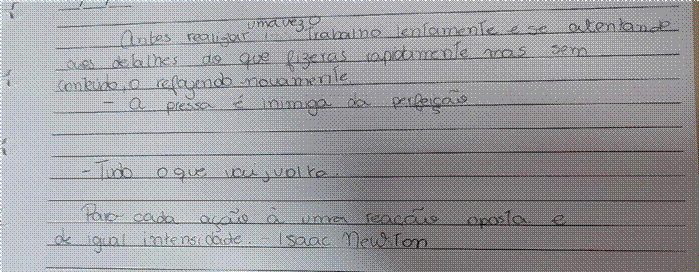 uma vez o
Antes realizar trabalho lentamente e se atentando
aos detalhes do que fizeras rapidamente mas sem
conteúdo, o refazendo novamente
- a pressa é inimiga da perfeição
- Tudo o que vai, volta.
Para cada ação à uma reação oposta e
de igual intensidade. - Isaac Newton